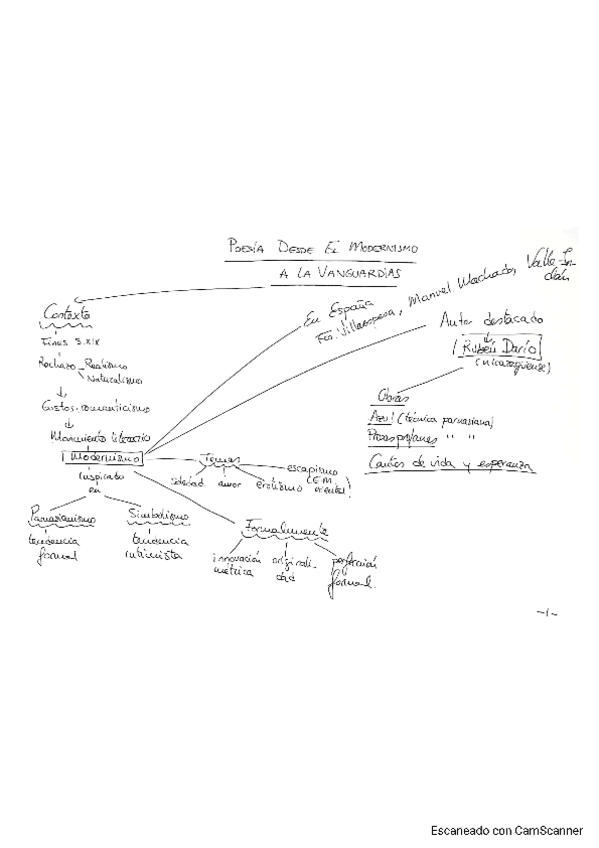 POESÍA DESDE EL MODERNISMO
A LA VANGUARDIAS
Contexto
Fines S.XIX
Rechazo Realismo
Naturalismo
Gustos romanticismo
Movimiento literario
Modernismo
Inspirado
en
Parnasianismo
tendencia
formal
Simbolismo
tendencia
intimista
Temas
soledad amor erotismo escapismo
(E.M,
oriental)
Formalmente
innovación
métrica
originali-
dad
perfección
formal
En España
Fco. Villaespesa, Manuel Machado, Valle-In-
clán
Autor destacado
Rubén Darío
(nicaragüense)
Obras
Azul (técnica parnasiana)
Prosas profanes " "
Cantos de vida y esperanza
-1-
Escaneado con CamScanner